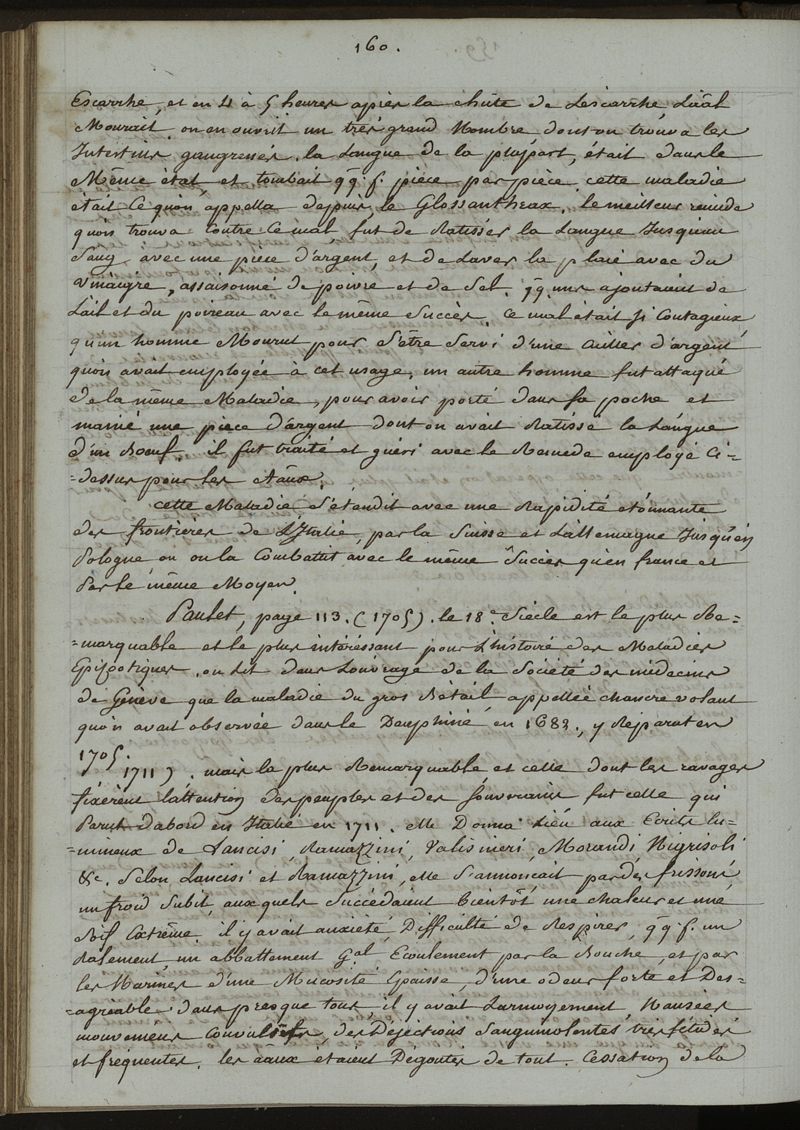 160.
Escarrhe, et en 4 à 5 heures après la chûte de Lescarrhe L'aâl
Mourait. on en ouvrit un très grand Nombre dont on trouva les
Intestins gangrenés. la Langue de la plûpart, était dans le
Même état, et tombait qq.f. pièce par pièce. cette maladie
était Ce qu'on appella depuis, le Glossantheax. le meilleur remede
qu'on trouva contre Ce mal, fut de Ratisser la Langue Jusqu'au
Sang, avec une pièce d'argent, et de Laver la plaie avec du
Vinaigre, assaisonné de poivre et de Sel. qq. uns ajoutaient de
L'ail et du poireau avec le même Succès. Ce mal était si Contagieux
qu'un homme Mourut pour s'être Servi d'une Cuiller d'argent
qu'on avait employée à cet usage, un autre homme fut attaqué
de la même Maladie, pour avoir porté dans sa poche et
manié une piece d'argent dont on avait Ratissé la Langue
d'un Boeuf. il fut traité et guéri avec le Remede employé Ci-
-dessus pour les Aâux.
cette Maladie S'étendit avec une Rapidité étonnante
des frontieres de L'Italie, par la Suisse et L'allemagne Jusqu'en
Pologne ou on la Combattit avec le même Succès qu'en france et
Par le même Moyen.
Paulet, page 113. (1705). le 18e. Siècle est le plus Re-
-marquable et le plus intéressant pour L'histoire des Maladies
Epizootiques. on dit dans L'ouvrage de la Société des médecins
de Genève que la maladie du gros Bétail appellée chancre volant
qu'on avait observée dans le Dauphiné en 1682, y Reparut en
1705.
1711). mais la plus Remarquable et celle dont les ravages
fixèrent l'attention des peuples et des Souverains fut celle qui
Parut d'abord en Italie en 1711. elle Donna Lieu aux Ecrits lu-
-mineux de Lancisi, Ramazzini, Valisnieri, Morandi, Nigrisoli
&c. Selon Lancisi et Ramazzini, elle S'annonçait par des frissons
un froid Subit, auxquels Succédaient bientôt une chaleur et une
Soif Extrême. il y avait anxieté, Difficulté de Respirer, qq.f. un
Ralement, un abbattement Gal. Ecoulement par la Bouche, et par
les Narines d'une Mucosité Epaisse, d'une odeur forte et Des-
-agréable. dans presque tous, il y avait Larmoyement, Nausées
mouvemens Convulsifs, des Dejections Sanguinolentes très fétides
et fréquentes. les aâux étaient Dégoutés de tout. Cessation de la